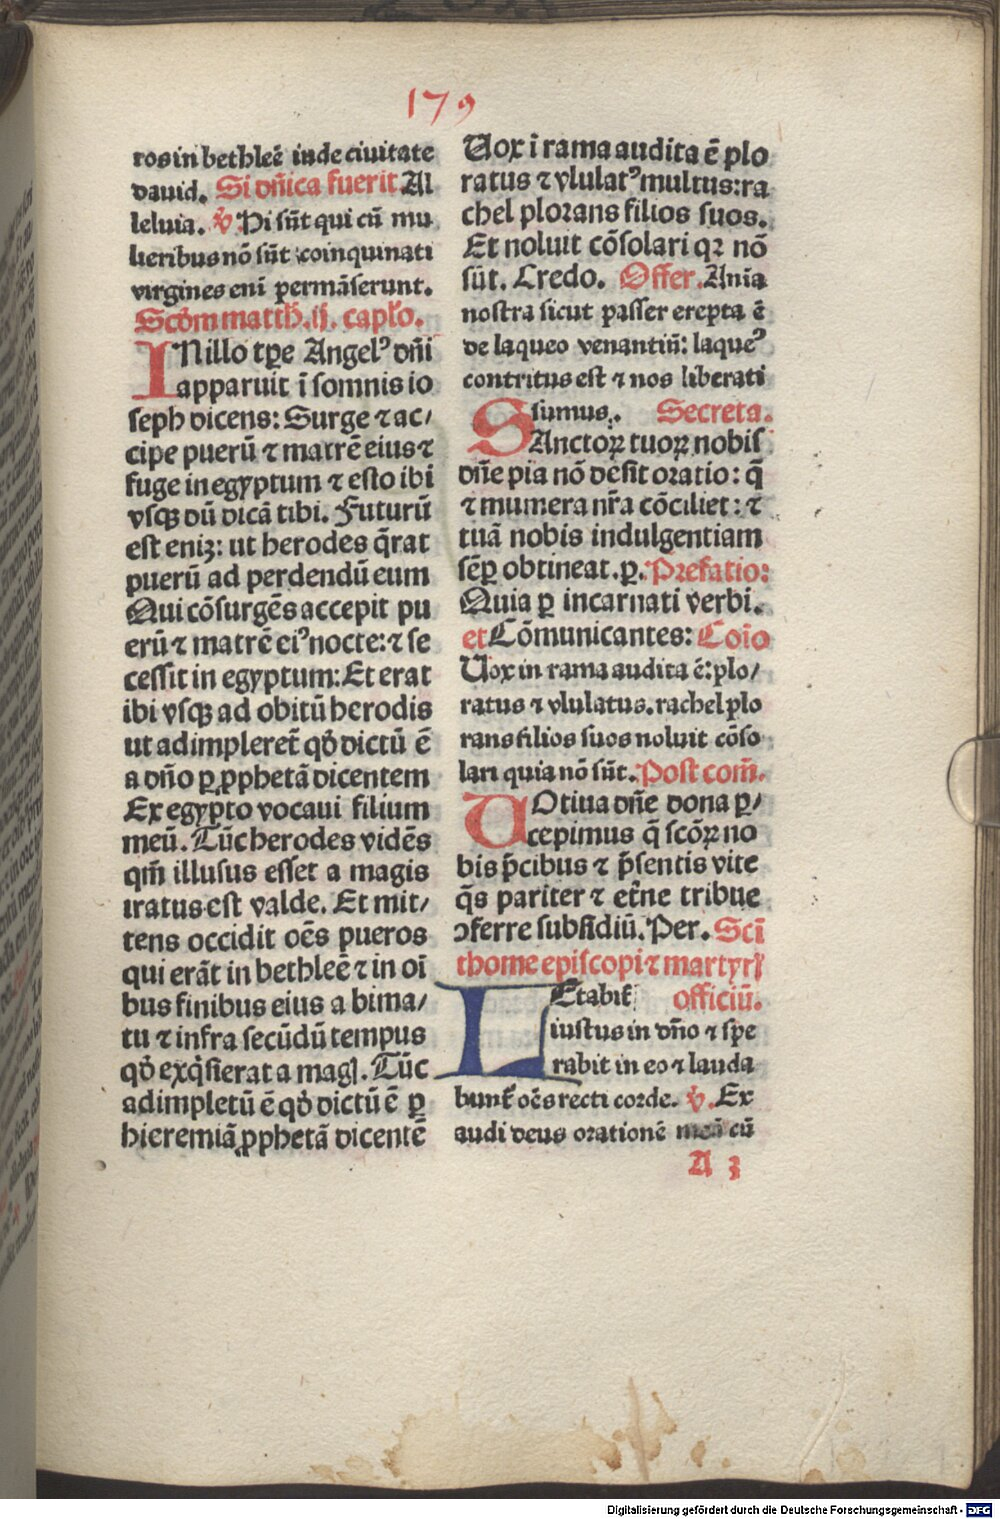 179
ros in bethleē iude ciuitate
dauid. Si dn̄ica fuerit Al
leluia. ꝟ Hi sūt qui cū mu
lieribus nō sūt coinquinati
virgines eni permāserunt.
Scd̄m matth̄. ij. caplo.
INillo tꝑe Angelꝰ dn̄i
apparuit ī somnis io
seph dicens: Surge ⁊ ac/
cipe puerū ⁊ matrē eius ⁊
fuge in egyptum ⁊ esto ibi
vsqꝫ dū dicā tibi. Futurū
est eniꝫ: ut herodes q̄rat
puerū ad perdendū eum
Qui cōsurgēs accepit pu
erū ⁊ matrē eiꝰ nocte: ⁊ se
cessit in egyptum: Et erat
ibi vsqꝫ ad obitū herodis
ut adimpleret̄ qd̄ dictū ē
a dn̄o ꝑ ꝓphetā dicentem
Ex egypto vocaui filium
meū. Tūc herodes vidēs
qm̄ illusus esset a magis
iratus est valde. Et mit/
tens occidit oēs pueros
qui erāt in bethleē ⁊ in oī
bus finibus eius a bima/
tu ⁊ infra secūdū tempus
qd̄ exq̄sierat a magꝭ. Tūc
adimpletū ē qd̄ dictū ē ꝑ
hieremiā ꝓphetā dicentē
Vox ī rama audita ē plo
ratus ⁊ vlulatꝰ multus: ra
chel plorans filios suos.
Et noluit cōsolari qꝛ nō
sūt. Credo. Offer. Anīa
nostra sicut passer erepta ē
de laqueo venantiū: laqueꝰ
contritus est ⁊ nos liberati
sumus. Secreta.
SAnctoꝝ tuoꝝ nobis
dn̄e pia nō desit oratio: q̄
⁊ munera nr̄a cōciliet: ⁊
tuā nobis indulgentiam
sēꝑ obtineat. ꝑ. Prefatio:
Quia ꝑ incarnati verbi.
et Cōmunicantes: Coīo
Vox in rama audita ē: plo/
ratus ⁊ vlulatus. rachel plo
rans filios suos noluit cōso
lari quia nō sūt. Post com̄.
VOtiua dn̄e dona ꝑ/
cepimus q̄ scōꝝ no
bis p̄cibus ⁊ p̄sentis vite
q̄s pariter ⁊ et̄ne tribue
ↄferre subsidiū. Per. Scī
thome episcopi ⁊ martyrꝭ
LEtabit̄ officiū.
iustus in dn̄o ⁊ spe
rabit in eo ⁊ lauda
bunt̄ oēs recti corde. ꝟ. Ex
audi deus orationē meā cū
A 3
Digitalisierung gefördert durch die Deutsche Forschungsgemeinschaft - DFG